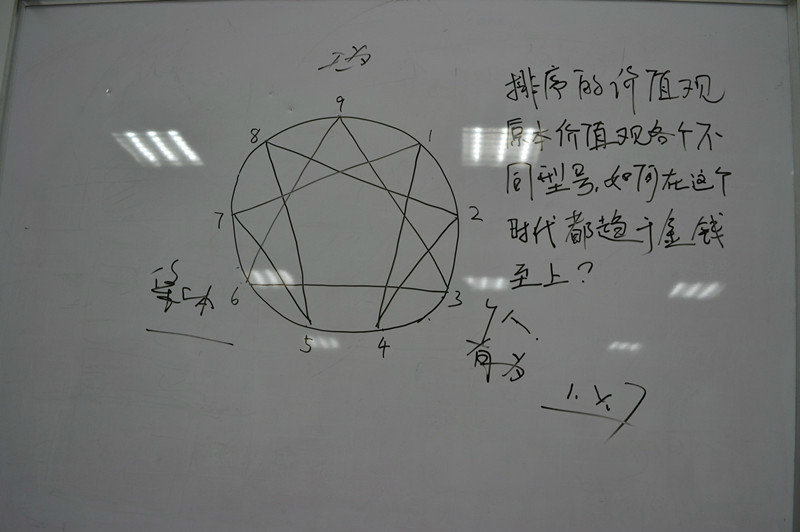 9
8
1
7
2
6
3
5
4
排序的价值观
原本价值观各个不
同型号,如何在这个
时代都趋于金钱
至上?
个人